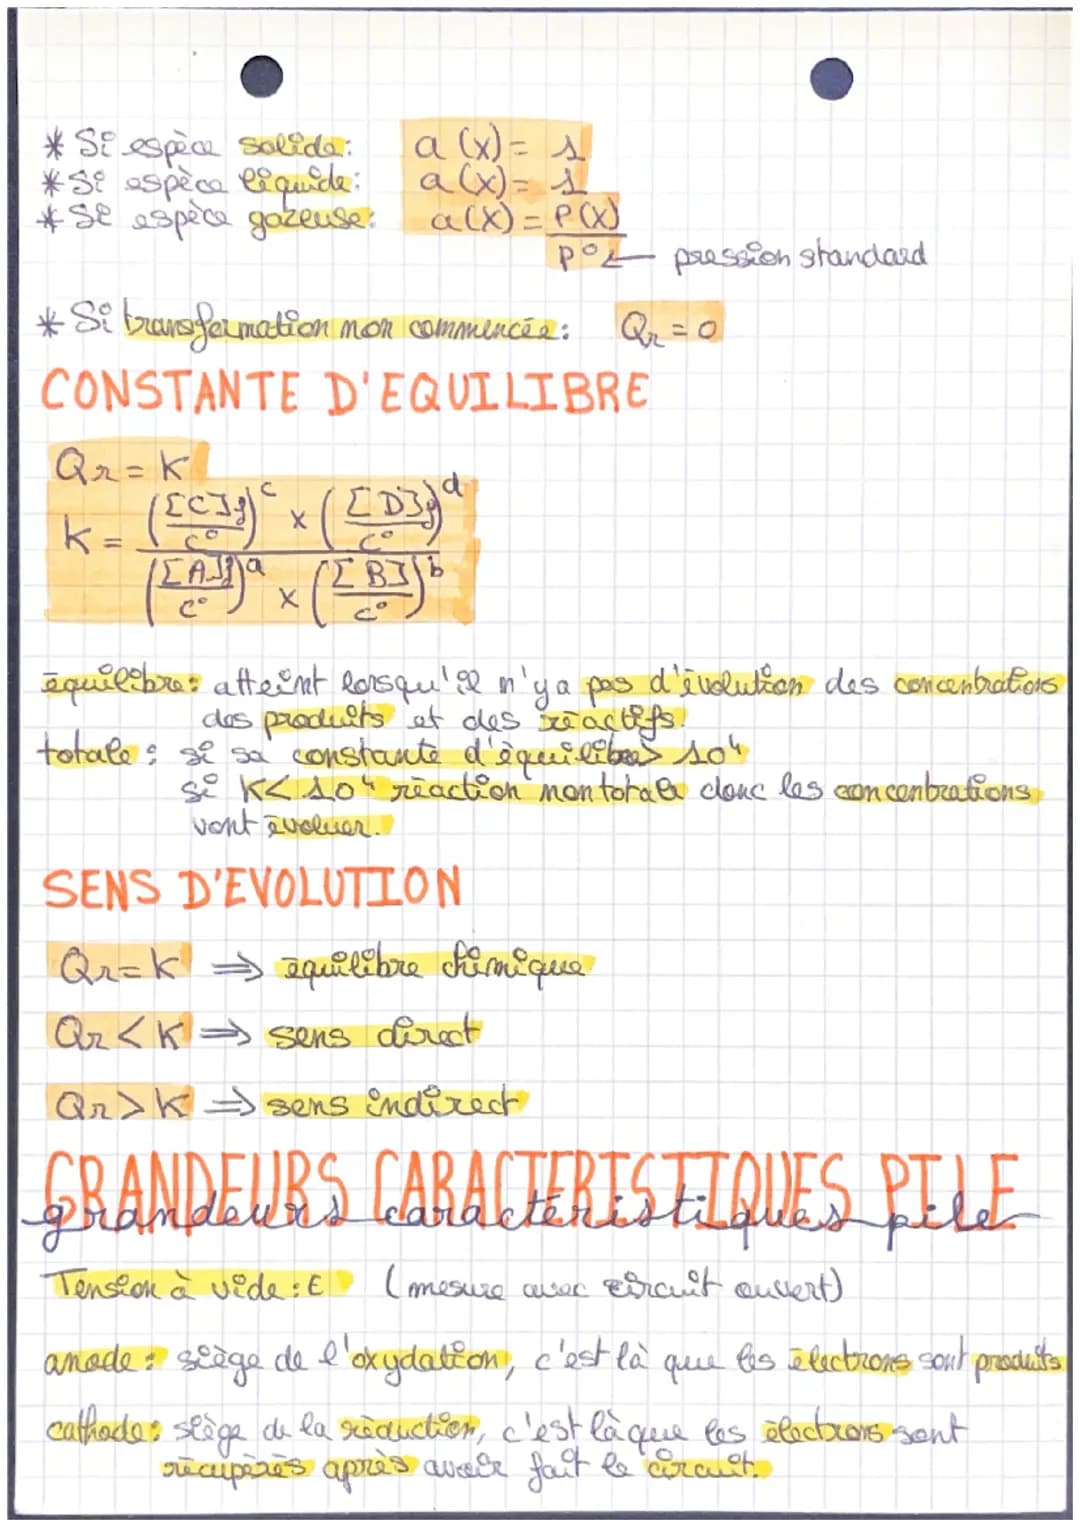 * Si espèce solide: a (x) = 1
* Si espèce liquide: a (x) = 1
* Si espèce gazeuse: a (X) = P(X) / P° ← pression standard
* Si transformation non commencée: Qr = 0
CONSTANTE D'EQUILIBRE
Qr = K
K = (([C]f/c°)^c × ([D]f/c°)^d) / (([A]f/c°)^a × ([B]/c°)^b)
équilibre: atteint lorsqu'il n'y a pas d'évolution des concentrations
des produits et des réactifs.
totale: si sa constante d'équilibre > 10⁴
si K < 10⁴ réaction non totale donc les concentrations
vont évoluer.
SENS D'EVOLUTION
Qr = K ⇒ équilibre chimique
Qr < K ⇒ sens direct
Qr > K ⇒ sens indirect
GRANDEURS CARACTERISTIQUES PILE
grandeurs caractéristiques pile
Tension à vide: E (mesure avec circuit ouvert)
anode: siège de l'oxydation, c'est là que les électrons sont produits
cathode: siège de la réduction, c'est là que les électrons sont
récupérés après avoir fait le circuit.